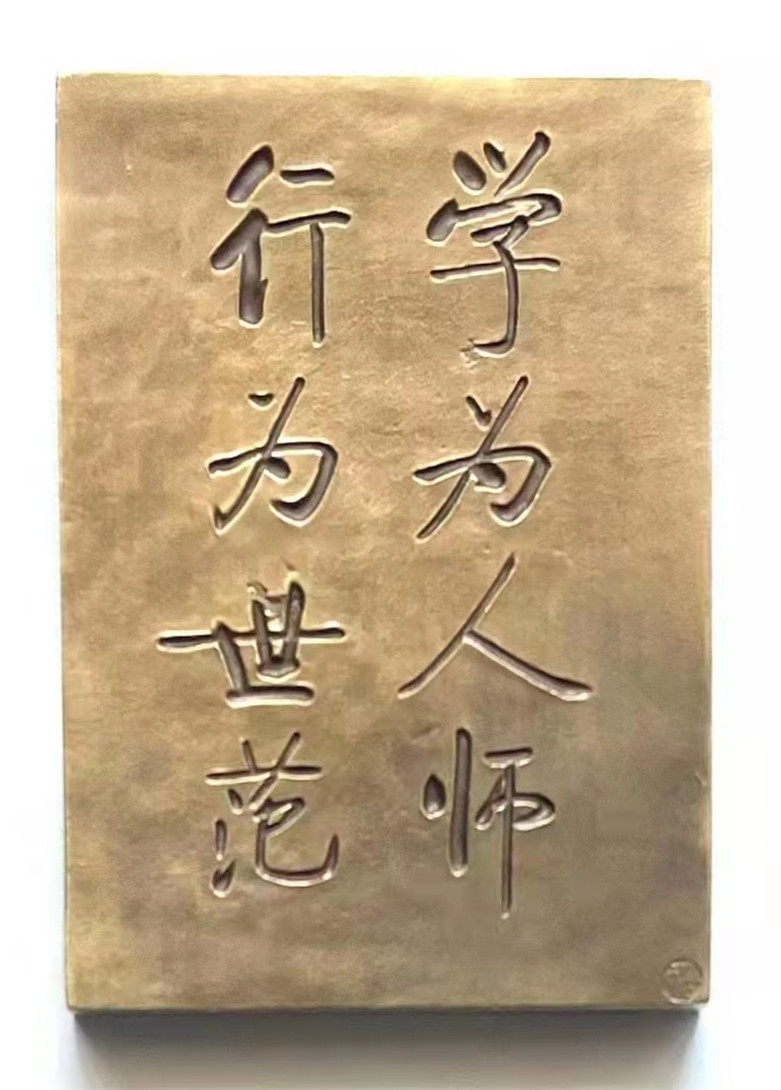 学为人师
行为世范